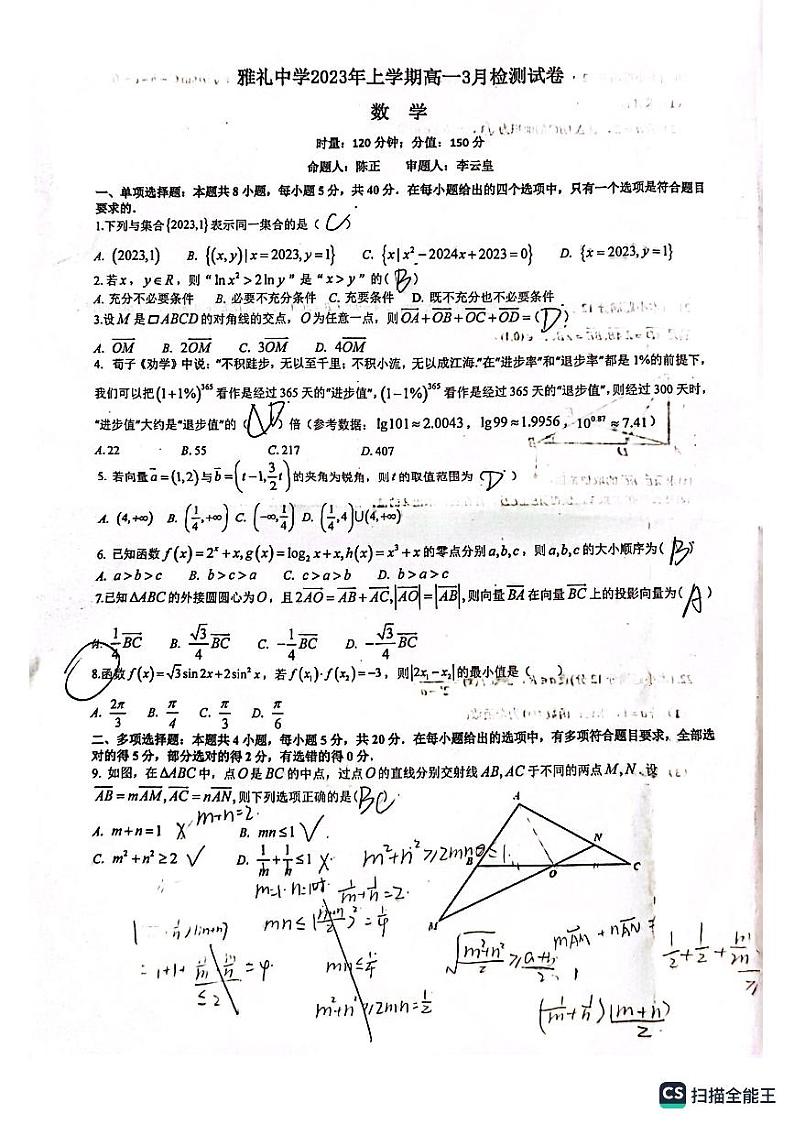 雅礼中学2023年上学期高一3月检测试卷
数 学
时量：120分钟；分值：150分
命题人：陈正 审题人：李云皇
一、单项选择题：本题共8小题，每小题5分，共40分．在每小题给出的四个选项中，只有一个选项是符合题目
要求的．
1.下列与集合{2023,1}表示同一集合的是（ C ）
A. (2023,1) B. {(x,y)|x=2023,y=1} C. {x|x²−2024x+2023=0} D. {x=2023,y=1}
2.若x，y∈R，则“ln x²>2ln y”是“x>y”的( B )
A. 充分不必要条件 B. 必要不充分条件 C. 充要条件 D. 既不充分也不必要条件
3.设M是□ABCD的对角线的交点，O为任意一点，则OA+OB+OC+OD=( D )
A. OM B. 2OM C. 3OM D. 4OM
4. 荀子《劝学》中说：“不积跬步，无以至千里；不积小流，无以成江海.”在“进步率”和“退步率”都是1%的前提下，
我们可以把(1+1%)^365看作是经过365天的“进步值”，(1−1%)^365看作是经过365天的“退步值”，则经过300天时，
“进步值”大约是“退步值”的（ D ）倍（参考数据：lg101≈2.0043，lg99≈1.9956，10^0.87≈7.41）
A.22 B.55 C.217 D.407
5. 若向量a=(1,2)与b=(t−1,3/2 t)的夹角为锐角，则t的取值范围为（ D ）
A. (4,+∞) B. (1/4,+∞) C. (−∞,1/4) D. (1/4,4)∪(4,+∞)
6. 已知函数f(x)=2^x+x,g(x)=log₂x+x,h(x)=x³+x的零点分别a,b,c，则a,b,c的大小顺序为( B )
A. a>b>c B. b>c>a C. c>a>b D. b>a>c
7.已知ΔABC的外接圆圆心为O，且2AO=AB+AC,|AO|=|AB|,则向量BA在向量BC上的投影向量为( A )
A. 1/4 BC B. √3/4 BC C. −1/4 BC D. −√3/4 BC
8.函数f(x)=√3sin2x+2sin²x，若f(x₁)·f(x₂)=−3，则|2x₁−x₂|的最小值是（ ）
A. 2π/3 B. π/4 C. π/3 D. π/6
二、多项选择题：本题共4小题，每小题5分，共20分．在每小题给出的选项中，有多项符合题目要求．全部选
对的得5分，部分选对的得2分，有选错的得0分．
9. 如图，在ΔABC中，点O是BC的中点，过点O的直线分别交射线AB,AC于不同的两点M,N，设
AB=mAM,AC=nAN,则下列选项正确的是( BC
m+n=2.
A. m+n=1 × B. mn≤1 √
C. m²+n²≥2 √ D. 1/m+1/n≤1 ×
m²+n²≥2mn
=1.
A
B
N
O
C
M
m=1. n=1时 1/m+1/n=2.
mn≤(m+n/2)²=1/4
=1+1+ =4.
≤2
mn≤1/4
m²+n²≥2mn=1/2
mAM+nAN
(1/m+1/n)(m+n)/2
CS 扫描全能王